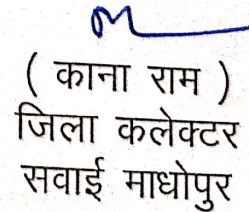 ( काना राम )
जिला कलेक्टर
सवाई माधोपुर